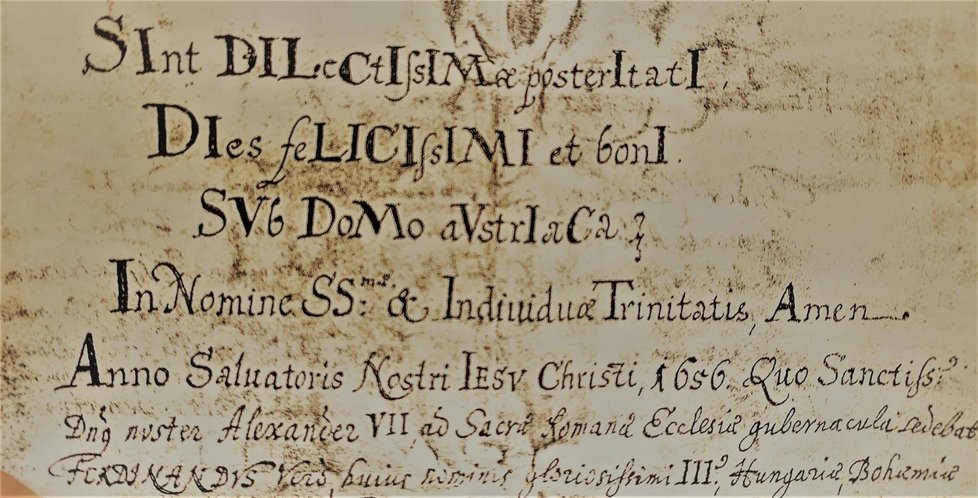 SInt DILecCtIſsIMæ posterItatI.
DIes feLICIſsIMI et bonI.
SVb DoMo aVstrIaCa;
In Nomine SS:mæ & Indiuiduæ Trinitatis, Amen.
Anno Saluatoris Nostri IESV Christi, 1656. Quo Sanctiſs:9
Dn9 noster Alexander VII ad Sacræ Romanæ Ecclesiæ gubernacula sedebat
FERDINANDVS Verò, huius nominis gloriosissimi III9, Hungariæ, Bohæmiæ